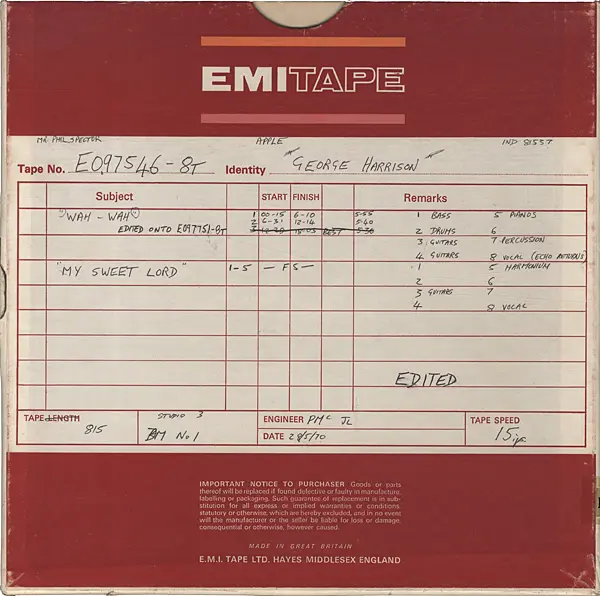 EMITAPE
MR. PHIL SPECTOR APPLE IND 81557
Tape No. E097546-8T Identity "GEORGE HARRISON"
Subject START FINISH Remarks
"WAH - WAH" 1 00-15 6-10 5-55 1 BASS 5 PIANOS
2 6-31 12-14 5-40
EDITED ONTO E097751-8T 3 12-30 18-03 BEST 5-30 2 DRUMS 6
3 GUITARS 7 PERCUSSION
4 GUITARS 8 VOCAL (ECHO
"MY SWEET LORD" 1-5 — FS — 1 5 HARMONIUM
2 6
3 GUITARS 7
4 8 VOCAL
EDITED
TAPE LENGTH 815 STUDIO 3 ENGINEER PMC JL TAPE SPEED
No 1 DATE 28/5/70 15 ips
IMPORTANT NOTICE TO PURCHASER Goods or parts
thereof will be replaced if found defective or faulty in manufacture,
labelling or packaging. Such guarantee of replacement is in sub-
stitution for all express or implied warranties or conditions,
statutory or otherwise, which are hereby excluded, and in no event
will the manufacturer or the seller be liable for loss or damage,
consequential or otherwise, however caused.
MADE IN GREAT BRITAIN
E.M.I. TAPE LTD. HAYES MIDDLESEX ENGLAND